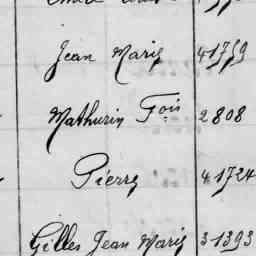 Jean Marie 41759
Mathurin Fois 2808
Pierre 41724
Gilles Jean Marie 31393